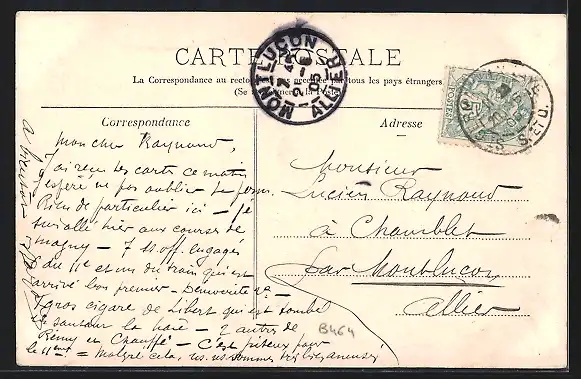 CARTE POSTALE
La Correspondance au recto n'est pas acceptée par tous les pays étrangers.
(Se renseigner à la Poste)
MONTLUÇON
ALLIER
POSTES
S. ET O.
Correspondance
Adresse
Mon cher Raynaud,
J'ai reçu tes cartes ce matin
J'espère ne pas oublier
Rien de particulier ici – Je
suis allé hier aux courses de
magny – 7 ss. off. engagés
du 11e et un du train qui est
arrivé bon premier –
gros cigare de Libert qui est tombé
en sautant la haie – 2 autres de
Rémy et Chauffé – C'est piteux pour
le 11eme = Malgré cela, ns. ns. sommes
Monsieur
Lucien Raynaud
à Chamblet
par Montluçon
Allier
B464